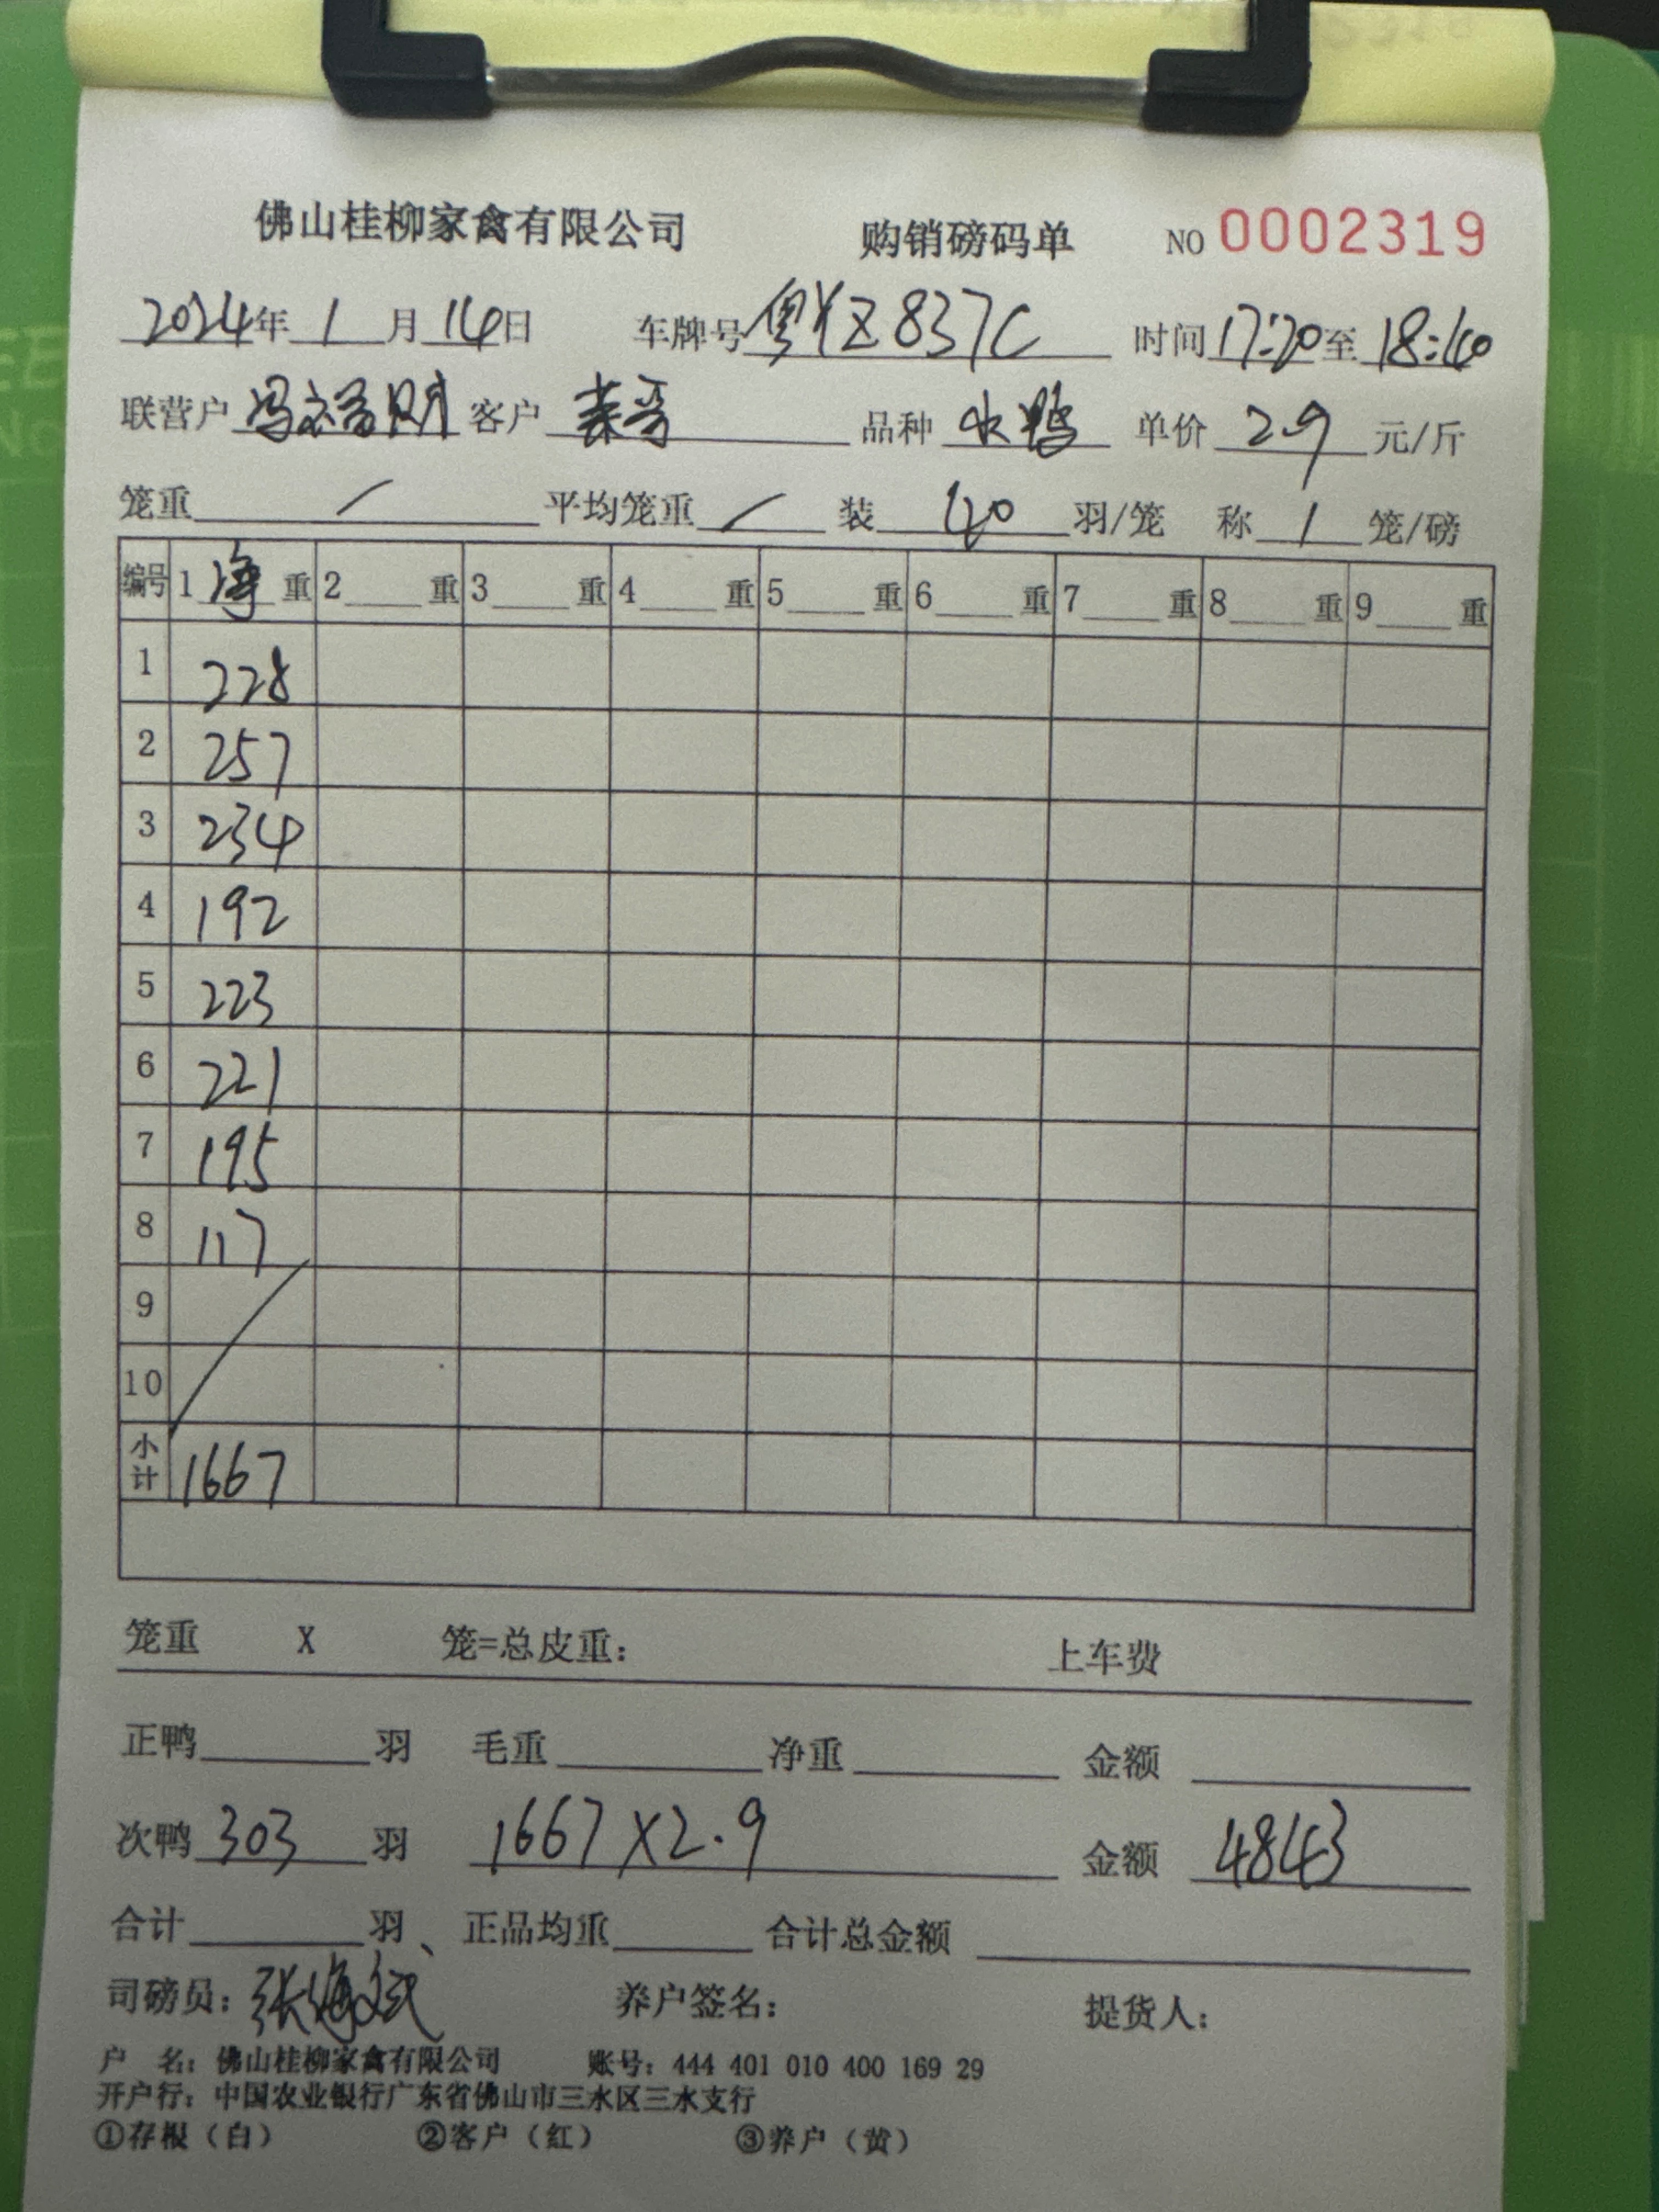 佛山桂柳家禽有限公司 购销磅码单 NO 0002319
2024年 1 月 14日 车牌号 粤YZ837C 时间 17:20 至 18:40
联营户 客户 品种 水鸭 单价 2.9 元/斤
笼重 / 平均笼重 / 装 40 羽/笼 称 1 笼/磅
编号 1 净 重 2 重 3 重 4 重 5 重 6 重 7 重 8 重 9 重
1 228
2 257
3 234
4 192
5 223
6 221
7 195
8 117
9
10
小计 1667
笼重 X 笼=总皮重: 上车费
正鸭 羽 毛重 净重 金额
次鸭 303 羽 1667X2.9 金额 4843
合计 羽、 正品均重 合计总金额
司磅员: 张海斌 养户签名: 提货人:
户 名: 佛山桂柳家禽有限公司 账号: 444 401 010 400 169 29
开户行: 中国农业银行广东省佛山市三水区三水支行
①存根（白） ②客户（红） ③养户（黄）